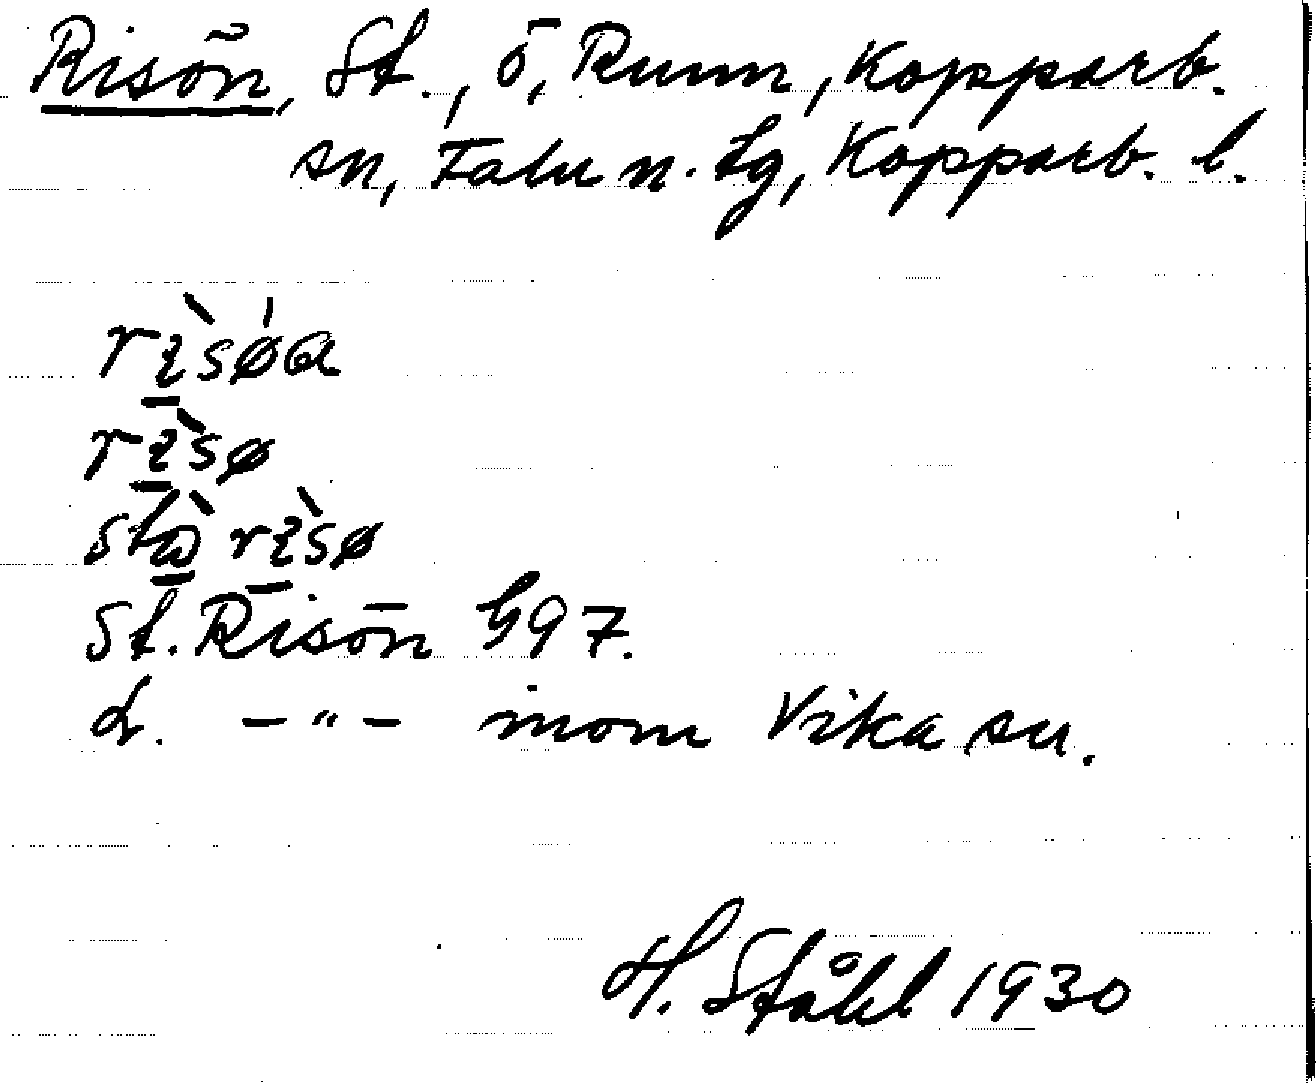 Risön, St., ö, Runn, Kopparb.
sn, Falu n. tg, Kopparb. l.
rìsǿa
rìsø
stò rìsø
St. Risön G97.
L. —"— inom Vika sn.
H. Ståhl 1930